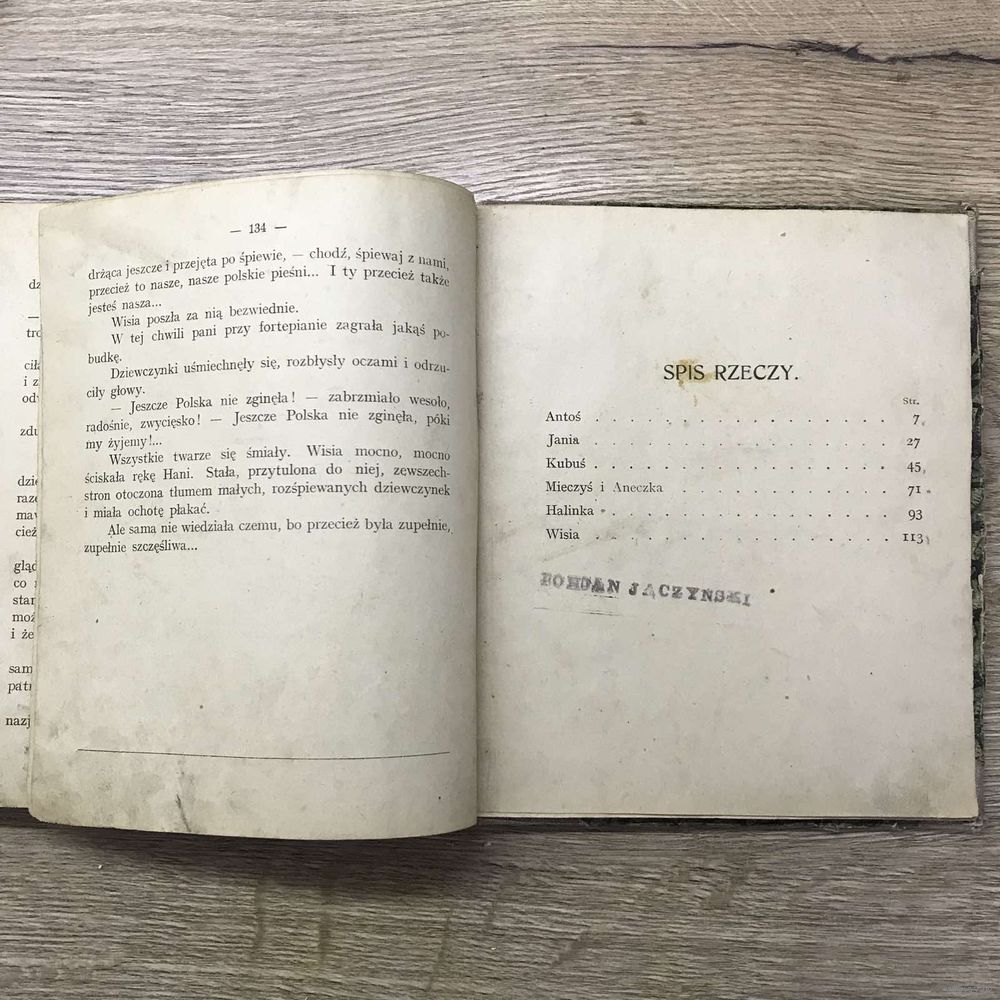 — 134 —
drżąca jeszcze i przejęta po śpiewie, — chodź, śpiewaj z nami,
przecież to nasze, nasze polskie pieśni... I ty przecież także
jesteś nasza...
Wisia poszła za nią bezwiednie.
W tej chwili pani przy fortepianie zagrała jakąś po-
budkę.
Dziewczynki uśmiechnęły się, rozbłysły oczami i odrzu-
ciły głowy.
— Jeszcze Polska nie zginęła! — zabrzmiało wesoło,
radośnie, zwycięsko! — Jeszcze Polska nie zginęła, póki
my żyjemy!...
Wszystkie twarze się śmiały. Wisia mocno, mocno
ściskała rękę Hani. Stała, przytulona do niej, zewszech-
stron otoczona tłumem małych, rozśpiewanych dziewczynek
i miała ochotę płakać.
Ale sama nie wiedziała czemu, bo przecież była zupełnie,
zupełnie szczęśliwa...
SPIS RZECZY.
Str.
Antoś . . . . . . . . . . . . . 7
Jania . . . . . . . . . . . . . 27
Kubuś . . . . . . . . . . . . . 45
Mieczyś i Aneczka . . . . . . . . . . 71
Halinka . . . . . . . . . . . . . 93
Wisia . . . . . . . . . . . . . 113
BOHDAN JĄCZYŃSKI